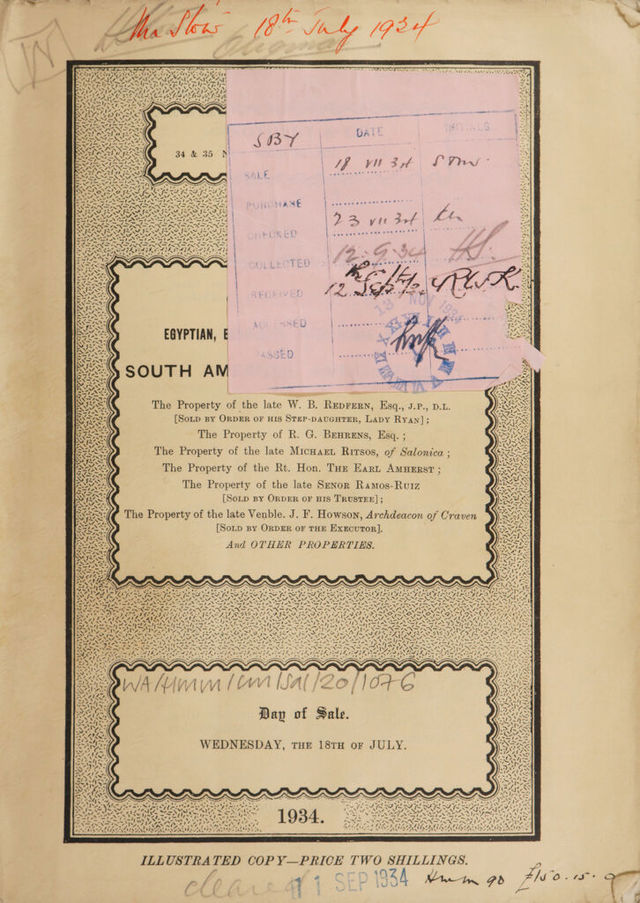 Mr Stow 18th July 1934
34 & 35
SBY DATE INITIALS
SALE 18 VII 34 Stow.
PURCHASE
CHECKED 23 VII 34
COLLECTED 12-9-34 HS.
RECEIVED 12 Sept R.W.K.
ACCESSED
PASSED
13 NOV 1934
EGYPTIAN,
SOUTH AM
The Property of the late W. B. REDFERN, Esq., J.P., D.L.
[SOLD BY ORDER OF HIS STEP-DAUGHTER, LADY RYAN] ;
The Property of R. G. BEHRENS, Esq. ;
The Property of the late MICHAEL RITSOS, of Salonica ;
The Property of the Rt. Hon. THE EARL AMHERST ;
The Property of the late SENOR RAMOS-RUIZ
[SOLD BY ORDER OF HIS TRUSTEE] ;
The Property of the late Venble. J. F. HOWSON, Archdeacon of Craven
[SOLD BY ORDER OF THE EXECUTOR].
And OTHER PROPERTIES.
WA/HMM/CM/Sal/20/1076
Day of Sale.
WEDNESDAY, THE 18TH OF JULY.
1934.
ILLUSTRATED COPY—PRICE TWO SHILLINGS.
cleared 11 SEP 1934 Hmm 90 £150.15.0